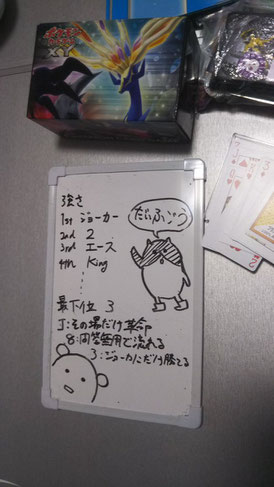 ポケモン
XY
強さ
1st ジョーカー
2nd 2
3rd エース
4th King
最下位 3
J:その場だけ革命
8:問答無用で流れる
3:ジョーカにだけ勝てる
だいふごう